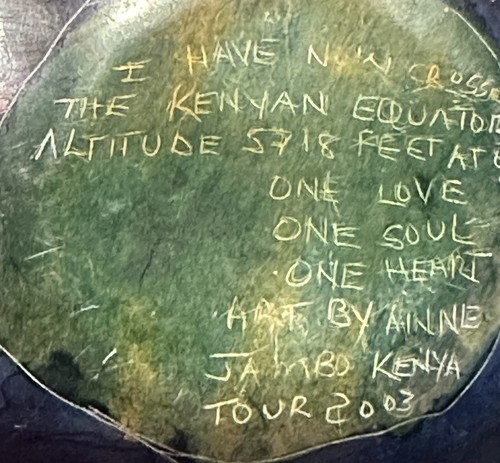 I HAVE NOW CROSSE
THE KENYAN EQUATOR
ALTITUDE 5718 FEET AT
ONE LOVE
ONE SOUL
ONE HEART
ART BY AINNE
JAMBO KENYA
TOUR 2003